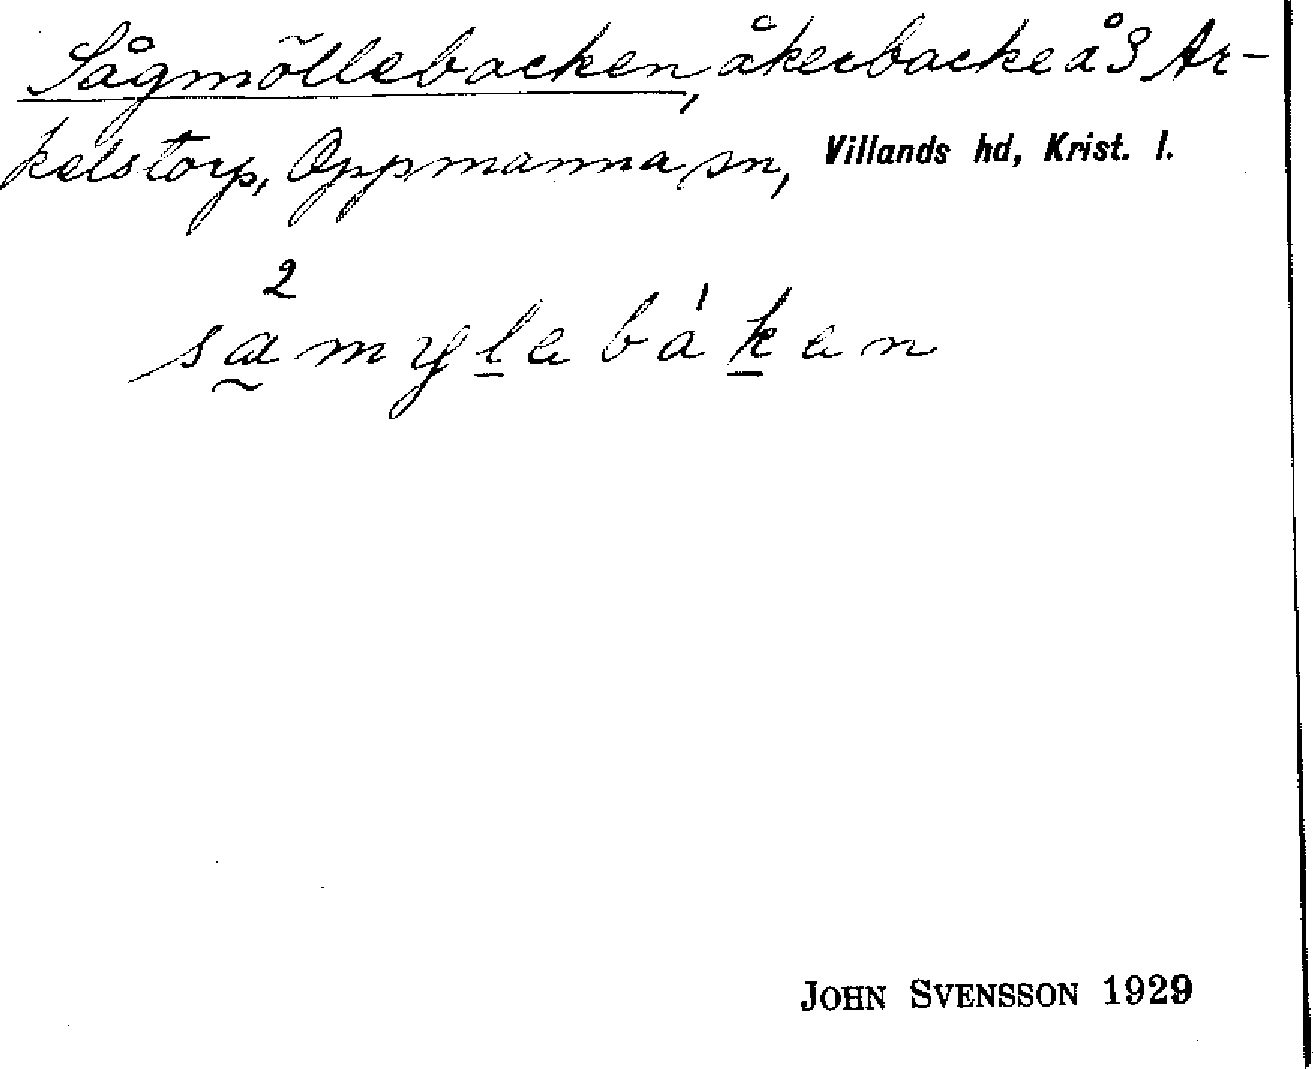 Sågmöllebacken, åkerbacke å 3 Ar-
kelstorp, Oppmanna sn, Villands hd, Krist. l.
2
samylebáken
JOHN SVENSSON 1929